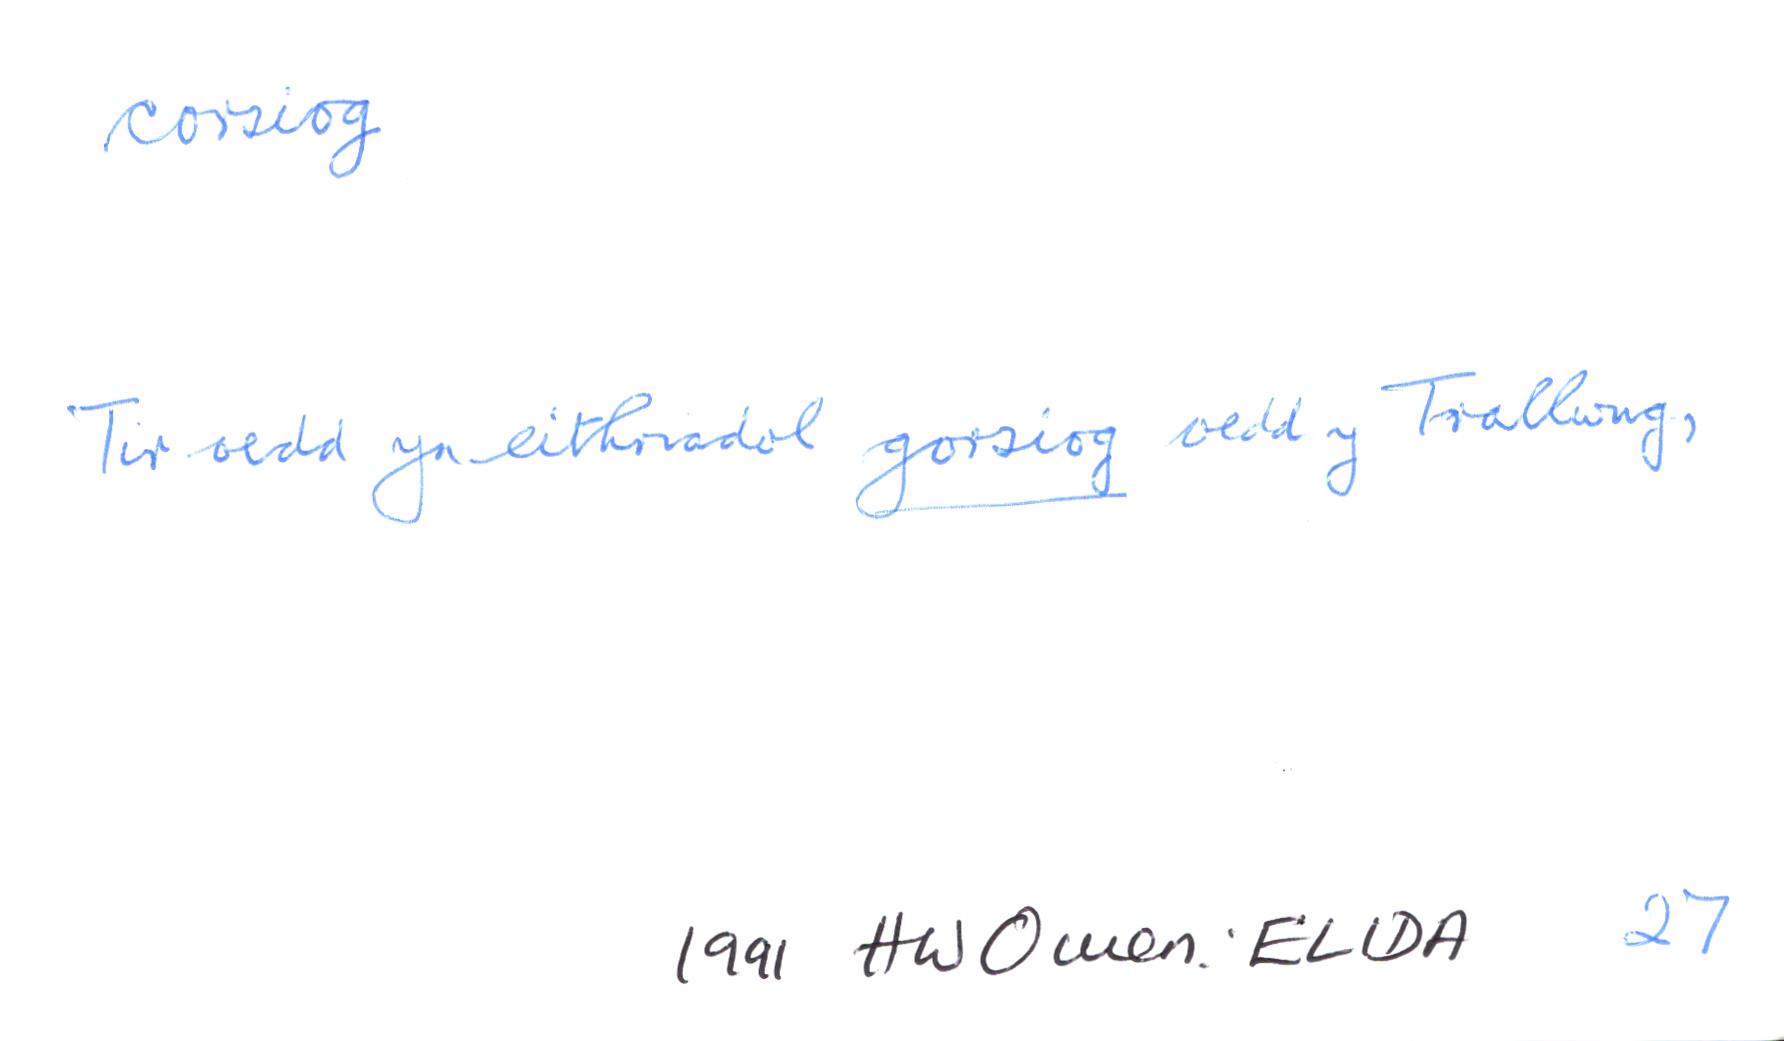 corsiog
Tir oedd yn eithriadol gorsiog oedd y Trallwng,
1991 HW Owen: ELlDA 27